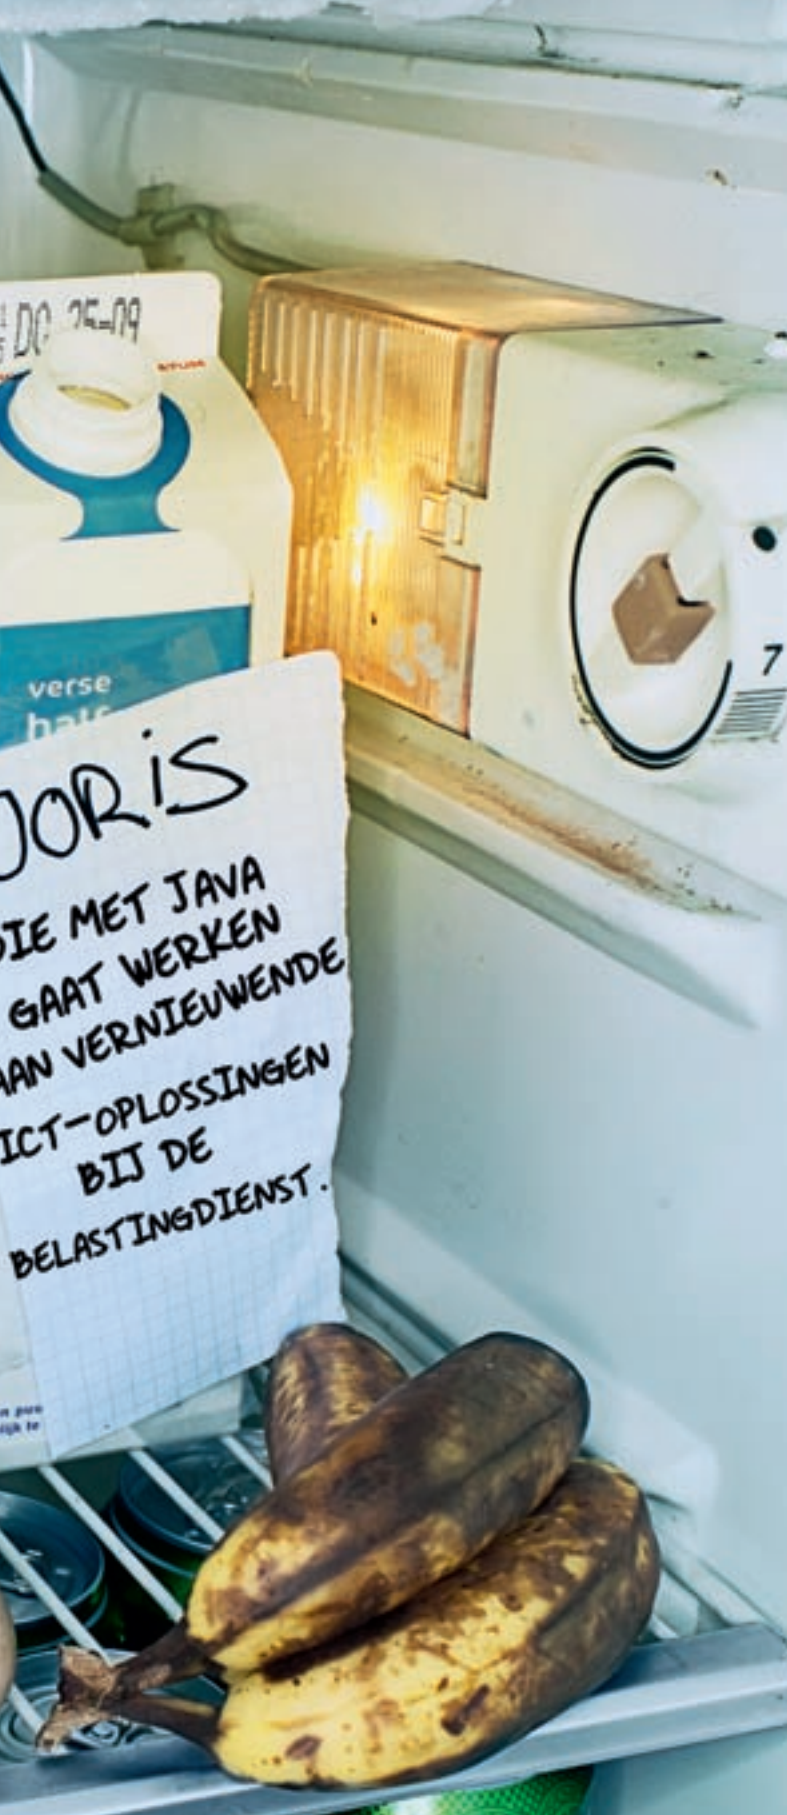 DO 25-09
verse
half
JORIS
DIE MET JAVA
GAAT WERKEN
AAN VERNIEUWENDE
ICT-OPLOSSINGEN
BIJ DE
BELASTINGDIENST.
7